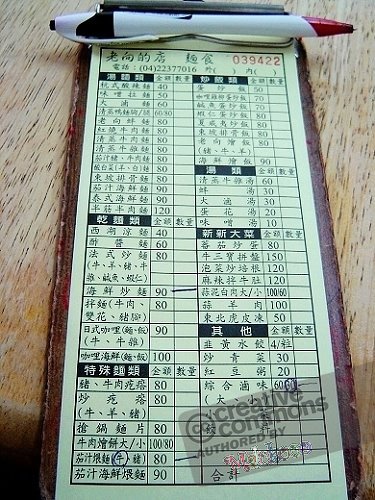 老向的店 麵食 039422
電話：(04)22377016 外( ) 內( )
湯麵類 金額 數量
杭式酸辣麵 40
味噌拉麵 60
大滷麵 60
清蒸嗎麵/餬 60/80
老向蚌麵 80
紅燒牛肉麵 80
清蒸牛肉麵 80
茄汁豬、牛肉麵 80
80
東坡排骨麵 80
茄汁海鮮麵 90
泰式海鮮麵 90
半筋半肉麵 120
乾麵類 金額 數量
西湖涼麵 40
酢醬麵 60
法式炒麵 80
(牛、羊、豬、牛
雜、鹹魚、蝦仁)
海鮮炒麵 90
拌麵(牛肉、 80
雙花、豬腳)
日式咖哩(麵‧飯) 90
(牛、牛雜)
咖哩海鮮(麵‧飯) 100
特殊麵類 金額 數量
豬、牛肉疙瘩 80
炒疙瘩 80
(牛、羊、豬)
搶鍋麵片 80
牛肉燴餅大/小 100/80
茄汁燜麵(牛/豬) 80
茄汁海鮮煨麵 90
炒飯類 金額 數量
蛋炒飯 50
咖哩雞柳蛋炒飯 70
鹹魚蛋炒飯 70
蝦仁蛋炒飯 80
夏威夷炒飯 80
東坡排骨飯 80
老向燴飯 80
(豬、牛、羊)
海鮮燴飯 90
湯類 金額 數量
清蒸牛雜湯 60
蚌湯 30
大滷湯 30
蛋花湯 20
味噌湯 10
新新大菜 金額 數量
蕃茄炒蛋 80
牛三寶拼盤 150
泡菜炒培根 120
麻辣拌牛肚 120
蒜泥白肉大/小 100/60
蒜羊肉 100
東北虎皮凍 50
其他 金額 數量
韭黃水餃 4/粒
炒青菜 30
紅豆粥 20
綜合滷味 60
(大、小)
合計
creative commons
AUTHORED BY